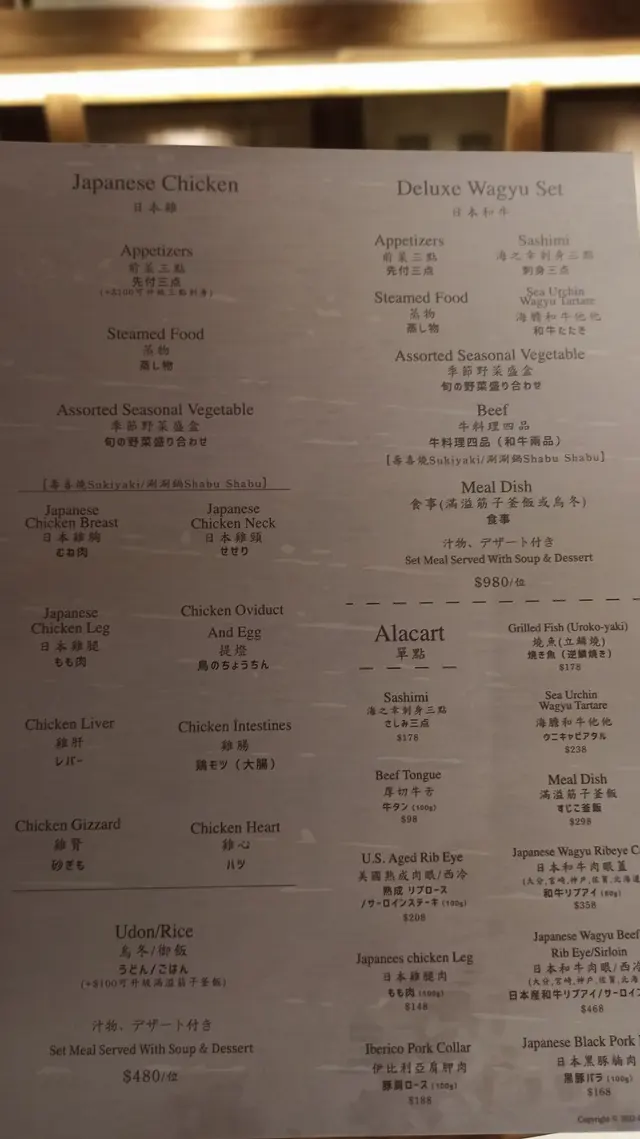 Japanese Chicken
日本雞
Appetizers
前菜三點
先付三点
(+$100可升級三點刺身)
Steamed Food
蒸物
蒸し物
Assorted Seasonal Vegetable
季節野菜盛盒
旬の野菜盛り合わせ
[壽喜燒Sukiyaki/涮涮鍋Shabu Shabu]
Japanese
Chicken Breast
日本雞胸
むね肉
Japanese
Chicken Neck
日本雞頸
せせり
Japanese
Chicken Leg
日本雞腿
もも肉
Chicken Oviduct
And Egg
提燈
鳥のちょうちん
Chicken Liver
雞肝
レバー
Chicken Intestines
雞腸
鶏モツ（大腸）
Chicken Gizzard
雞腎
砂ぎも
Chicken Heart
雞心
ハツ
Udon/Rice
烏冬/御飯
うどん/ごはん
(+$100可升級滿溢筋子釜飯)
汁物、デザート付き
Set Meal Served With Soup & Dessert
$480/位
Deluxe Wagyu Set
日本和牛
Appetizers
前菜三點
先付三点
Sashimi
海之幸刺身三點
刺身三点
Steamed Food
蒸物
蒸し物
Sea Urchin
Wagyu Tartare
海膽和牛他他
和牛たたき
Assorted Seasonal Vegetable
季節野菜盛盒
旬の野菜盛り合わせ
Beef
牛料理四品
牛料理四品（和牛兩品）
[壽喜燒Sukiyaki/涮涮鍋Shabu Shabu]
Meal Dish
食事(滿溢筋子釜飯或烏冬)
食事
汁物、デザート付き
Set Meal Served With Soup & Dessert
$980/位
Alacart
單點
Sashimi
海之幸刺身三點
さしみ三点
$178
Beef Tongue
厚切牛舌
牛タン (100g)
$98
U.S. Aged Rib Eye
美國熟成肉眼/西冷
熟成 リブロース
/サーロインステーキ (100g)
$208
Japanees chicken Leg
日本雞腿肉
もも肉 (100g)
$148
Iberico Pork Collar
伊比利亞肩胛肉
豚肩ロース (100g)
$188
Grilled Fish (Uroko-yaki)
燒魚(立鱗燒)
焼き魚（逆鱗焼き）
$178
Sea Urchin
Wagyu Tartare
海膽和牛他他
ウニキャビアタル
$238
Meal Dish
滿溢筋子釜飯
すじこ釜飯
$298
Japanese Wagyu Ribeye
日本和牛肉眼蓋
(大分,宮崎,神戸,佐賀,北海道
和牛リブアイ (60g)
$358
Japanese Wagyu Beef
Rib Eye/Sirloin
日本和牛肉眼/西冷
(大分,宮崎,神戸,佐賀,北海
日本産和牛リブアイ/サーロイン
$468
Japanese Black Pork
日本黑豚腩肉
黒豚バラ (100g)
$168
Copyright ©